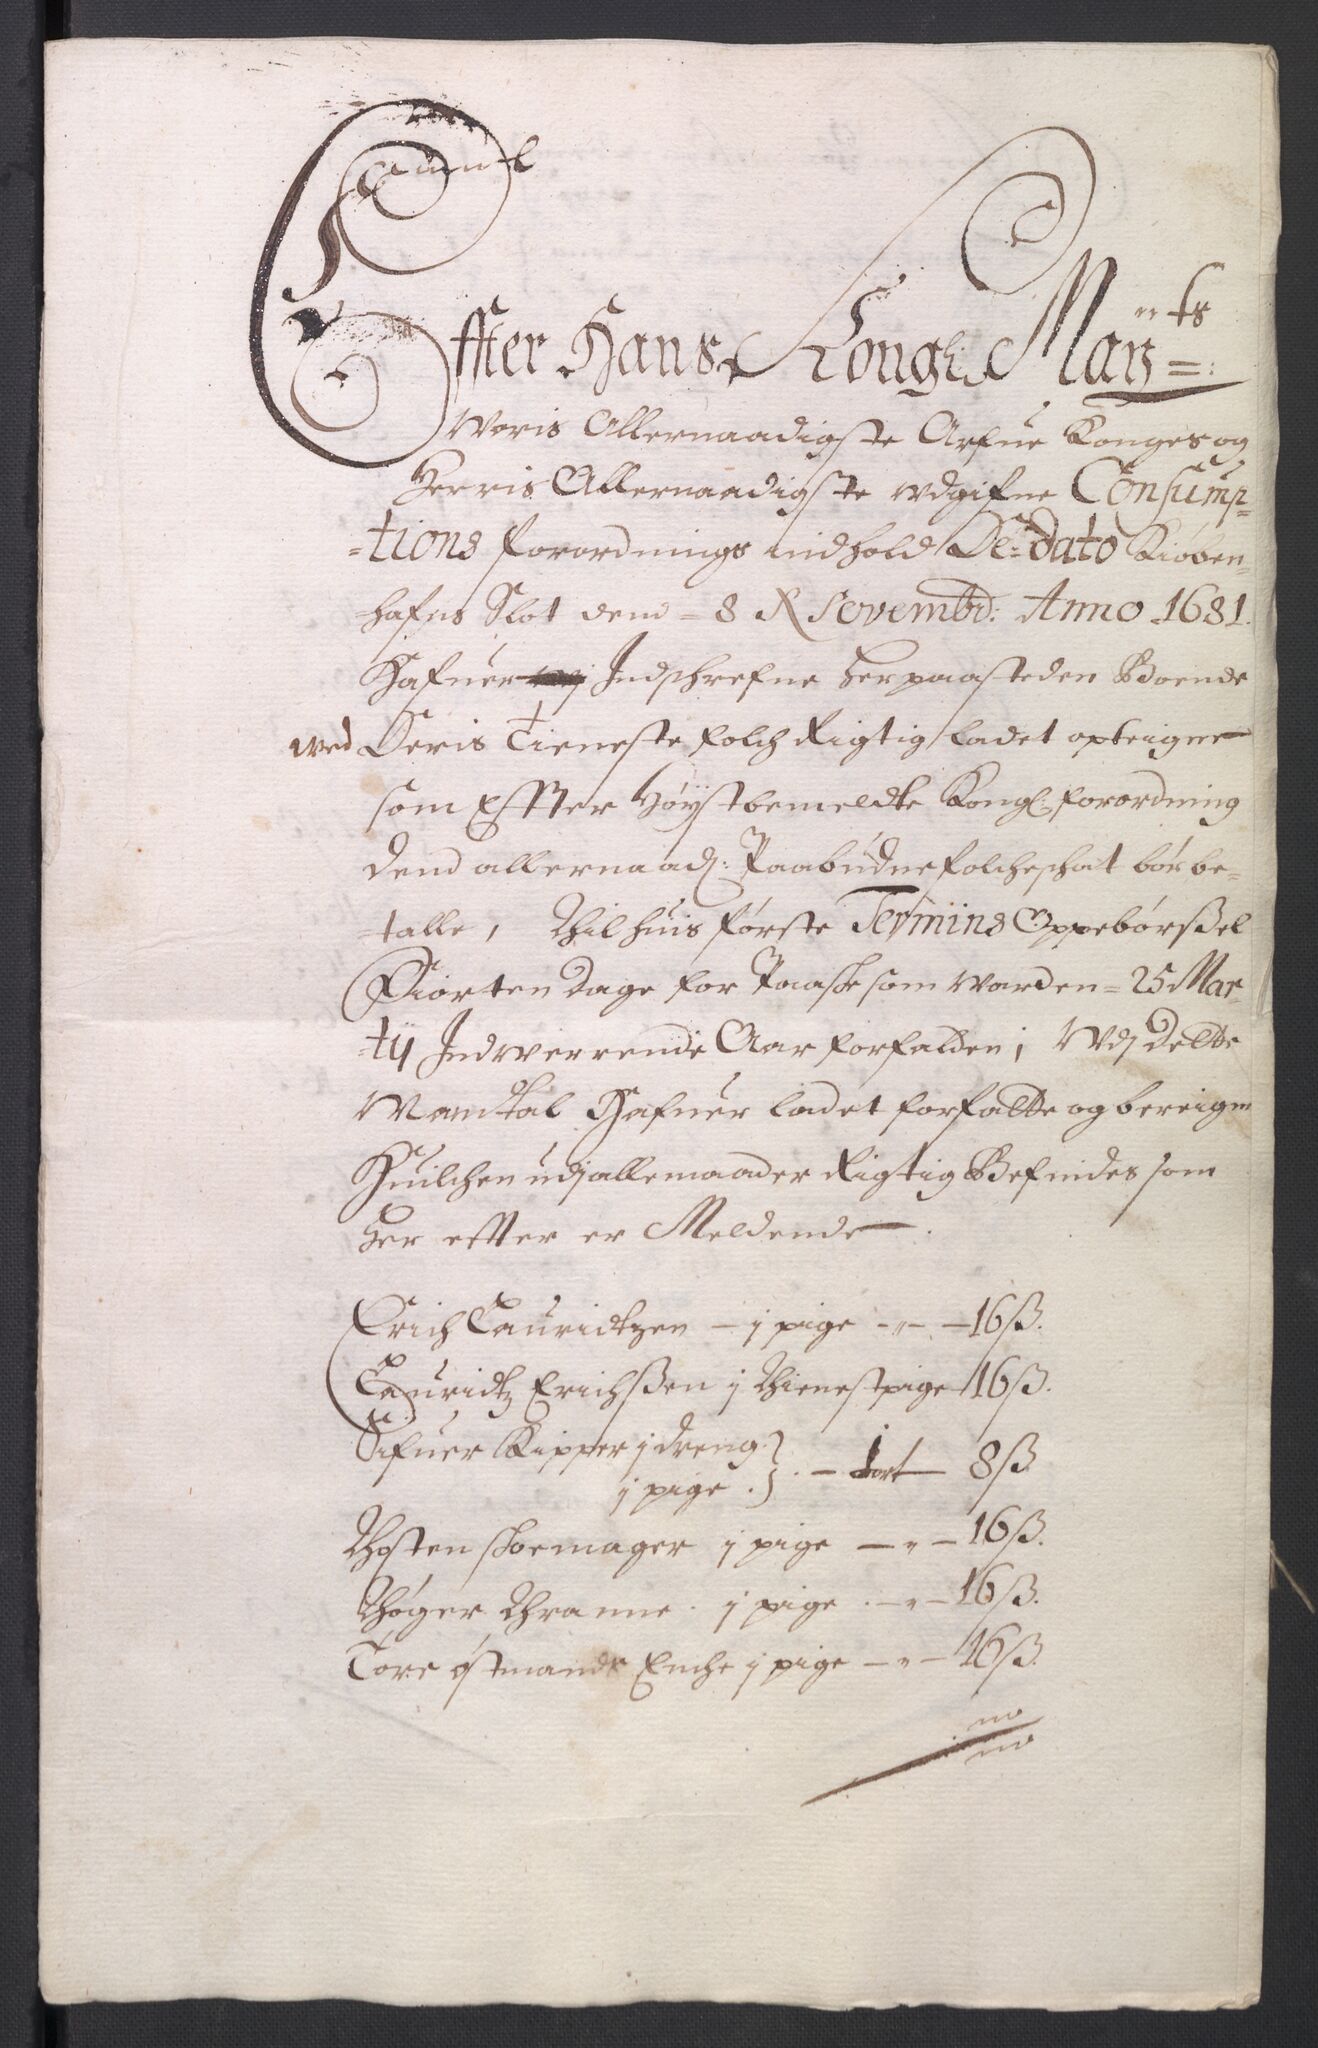 Effter Hans Kongl: May:ts
Woris Allernaadigste Arfue Konges og
Herris Allernaadigste udgifne Consump=
=tions forordnings indhold De: dato Kiøben=
hafns Slot dend 8 Novembr: Anno 1681.
Hafuer Indschrefne her paa steden Boende
med Deris Tieneste folch Rigtig ladet opteigne
som Effter Høystbemeldte Kongl: forordning
dend allernaad: Paabudne folcheschat bør be=
=talle, Thil huis første Termins Oppebørßel
Fiorten dage for Paasche som warden = 25 Mar=
=ty Indwerrende Aar forfalden, Udj Dette
Mandtal Hafuer ladet forfatte og bereigne
Huilchen udj alle maader Rigtig Befindes som
her effter er Meldende.
Erich Lauridtzen – j pige – „ – 16ß.
Lauridtz Erichßen j Thienestpige 16ß.
Sifuer Kipper j dreng
j pige – 1 ort – 8ß
Thosten schoemager j pige – „ – 16ß.
Thøger Thranne . j pige – „ – 16ß.
Tore østmands Enche j pige – „ – 16ß.